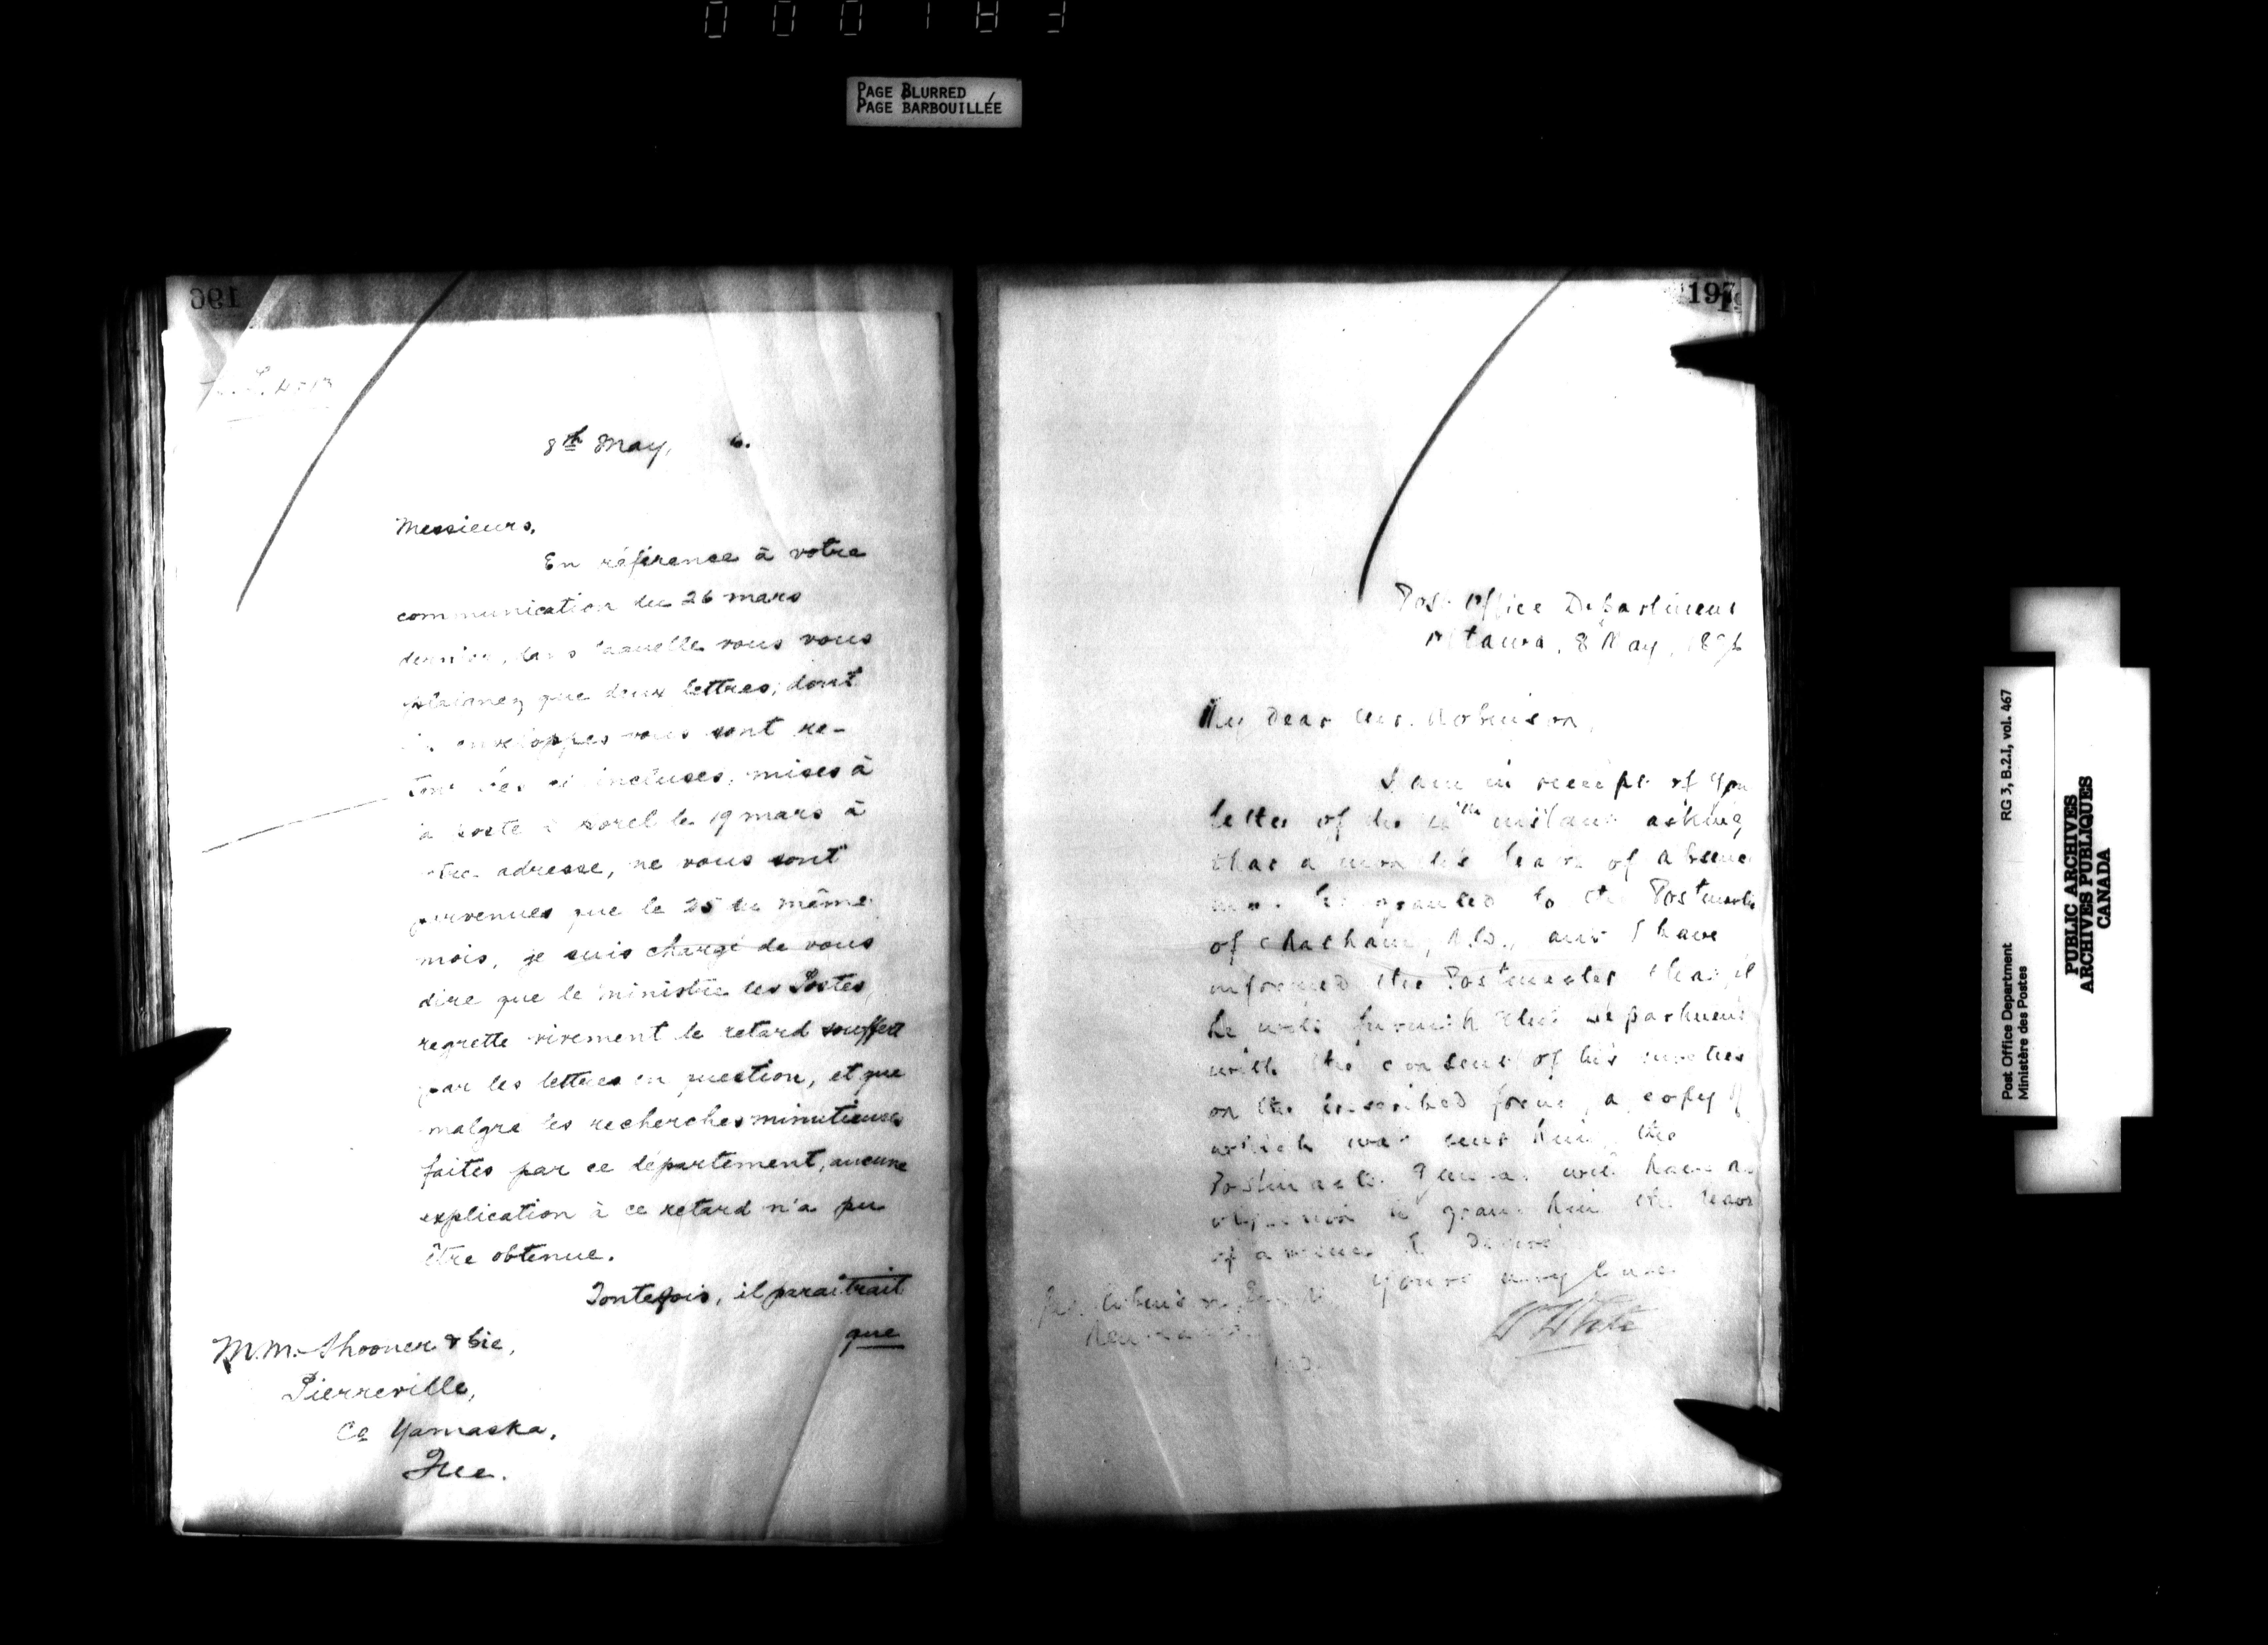 PAGE BLURRED
PAGE BARBOUILLÉE
196
8th May, 6.
Messieurs,
En référence à votre
communication du 26 mars
dernier, dans laquelle vous vous
plaignez que deux lettres, dont
enveloppes vous sont re-
incluses, mises à
la poste à Sorel le 19 mars à
votre adresse, ne vous sont
parvenues que le 25 du même
mois, je suis chargé de vous
dire que le ministre des Postes
regrette vivement le retard souffert
par les lettres en question, et que
malgré les recherches minutieuses
faites par ce département, aucune
explication à ce retard n'a pu
être obtenue.
Toutefois, il paraîtrait
que
M.M. Shooner & Cie,
Pierreville,
Co Yamaska,
Que.
197
Post Office Department
Ottawa, 8 May, 1896
My dear Mr. Robinson,
I am in receipt of your
letter of the instant asking
that a month's leave of absence
may be granted to the Postmaster
of Chatham, N.B., and I have
informed the Postmaster that if
he will furnish the Department
with the consent of his sureties
on the prescribed form, a copy of
which was sent him, the
Postmaster General will have no
objection to grant him the leave
of absence he
Yours very
W White
Post Office Department
Ministère des Postes
RG 3, B.2.I, vol. 467
PUBLIC ARCHIVES
ARCHIVES PUBLIQUES
CANADA